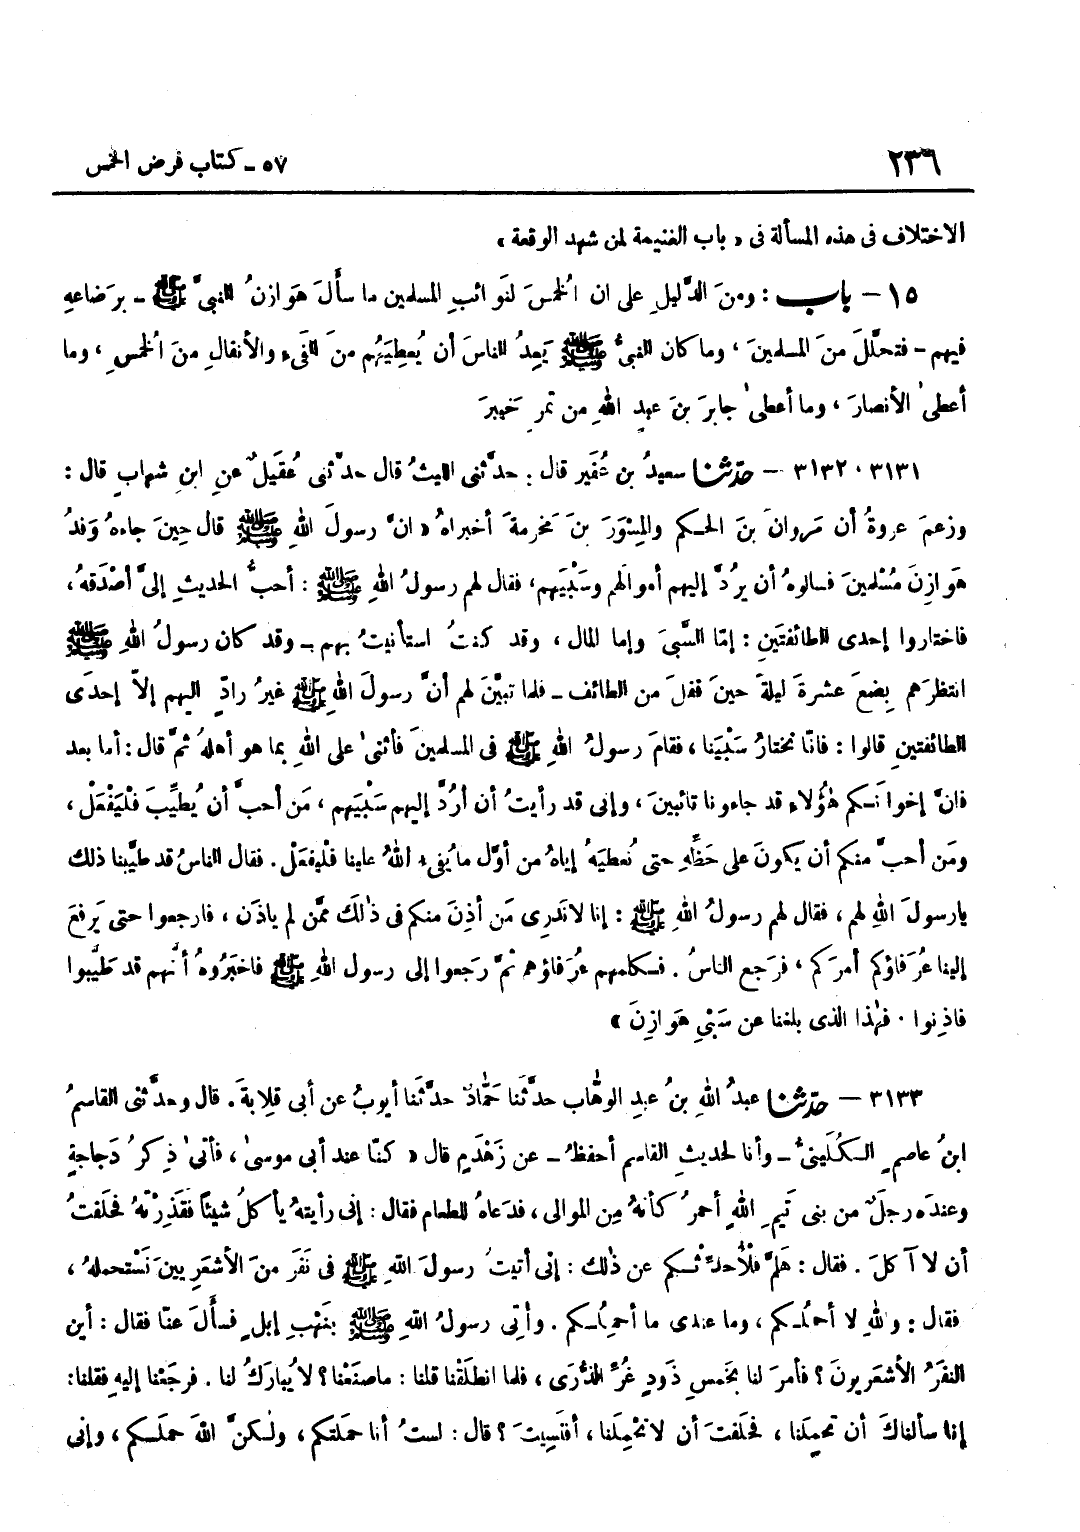 ٢٣٦
٥٧ - كتاب فرض الخمس
الاختلاف فى هذه المسألة فى « باب الغنيمة لمن شهد الوقعة »
١٥ - باب : ومنَ الدَّليلِ على ان الخمسَ لنَوائبِ المسلمين ما سأَلَ هَوازنُ النبيَّ ﷺ - برَضاعهِ
فيهم - فتحلَّلَ منَ المسلمينَ ، وما كان النبيُّ ﷺ يَعِدُ الناسَ أن يُعطِيَهُم منَ الفَيءِ والأنفالِ منَ الخمسِ ، وما
أعطىٰ الأنصارَ ، وما أعطىٰ جابرَ بنَ عبدِ اللهِ من تمرِ خيبرَ
٣١٣١ ، ٣١٣٢ - حدّثنا سعيدُ بن عُفَير قال : حدَّثنى الليثُ قال حدثنى عُقَيلٌ عنِ ابنِ شهابٍ قال :
وزعمَ عروةُ أن مَروانَ بنَ الحـكم والمِسْوَرَ بنَ مَخرمةَ أخبراهُ « انَّ رسولَ اللهِ ﷺ قال حِينَ جاءهُ وَفدُ
هَوازِنَ مُسْلمينَ فسالوهُ أن يرُدَّ إليهم أموالهم وسَبْيَهم، فقال لهم رسولُ اللهِ ﷺ : أحبُّ الحديثِ إلىَّ أصْدَقهُ ،
فاختاروا إحدى الطائفتَينِ : إمّا السَّبىَ وإما المال ، وقد كنتُ استأنيتُ بهم - وقد كان رسولُ اللهِ ﷺ
انتظرَهم بِضعَ عشرةَ ليلةً حينَ قفلَ من الطائف - فلما تبيَّنَ لهم أنَّ رسولَ اللهِ ﷺ غيرُ رادٍّ اليهم إلاّ إحدَى
الطائفتينِ قالوا : فانّا نختارُ سَبْيَنا ، فقامَ رسولُ اللهِ ﷺ فى المسلمينَ فأثنىٰ على اللهِ بما هو أهلهُ ثمَّ قال : أما بعد
فانَّ إخوانَـكم هٰؤُلاءِ قد جاءونا تائبينَ ، وإنى قد رأيتُ أن أرُدَّ إليهم سَبْيَهم ، مَن أحبَّ أن يُطيِّبَ فلْيَفْعَلْ ،
ومَن أحبَّ منكم أن يكونَ على حَظِّهِ حتى نُعطيَهُ إياهُ من أوَّلِ ما يُفيءُ اللهُ علينا فلْيفعَلْ . فقال الناسُ قد طيَّبنا ذلك
يارسولَ اللهِ لهم ، فقال لهم رسولُ اللهِ ﷺ : إنا لا نَدرِى مَن أذِنَ منكم فى ذٰلكَ ممَّن لم ياذَن ، فارجعوا حتى يَرفعَ
إلينا عُرَفاؤكم أمرَكم ، فرَجع الناسُ . فـكلمهم عرَفاؤهم ثمَّ رَجعوا إلى رسول اللهِ ﷺ فاخبَرُوهُ أنَّهم قد طيَّبوا
فاذِنوا . فهٰذا الذى بلغنا عن سَبْيِ هَوازِنَ »
٣١٣٣ - حدّثنا عبدُ اللهِ بنُ عبدِ الوهّاب حدَّثَنا حَمّادٌ حدَّثَنا أيوبُ عن أبى قلابةَ . قال وحدَّثنى القاسمُ
ابنُ عاصمٍ الـكُلَينىُّ - وأنا لحديثِ القاسم أحفظُ - عن زَهْدَمٍ قال « كنّا عند أبى موسىٰ ، فأتىَٰ ذِكرُ دَجاجةٍ
وعندَه رجلٌ من بنى تَيمِ اللهِ أحمرُ كأنهُ مِن الموالى ، فدَعاهُ للطعام فقال : إنى رأيتهُ يأكلُ شيئًا فقَذِرْتُهُ فحَلَفتُ
أن لا آكلَ . فقال : هَلمَّ فْلأُحدِّثْـكم عن ذٰلك : إنى أتيتُ رسولَ اللهِ ﷺ فى نَفَرٍ منَ الأشعَريينَ نَسْتحملهُ ،
فقال : واللهِ لا أحملُـكم ، وما عندى ما أحملُـكم . وأتِىَ رسولُ اللهِ ﷺ بنَهْبِ إبلٍ فسأَلَ عنّا فقال : أين
النفَرُ الأشعَريونَ ؟ فأمرَ لنا بخَمسِ ذَودٍ غُرِّ الذُّرَى ، فلما انطلَقْنا قلنا : ماصنَعْنا ؟ لا يُبارَكُ لنا . فرجَعْنا إليهِ فقلنا:
إنا سألناكَ أن تحمِلَنا ، فحَلَفتَ أن لا تحْمِلَنا ، أفنَسِيتَ ؟ قال : لستُ أنا حمَلتكم ، ولٰـكنَّ اللهَ حملَـكم ، وإنى